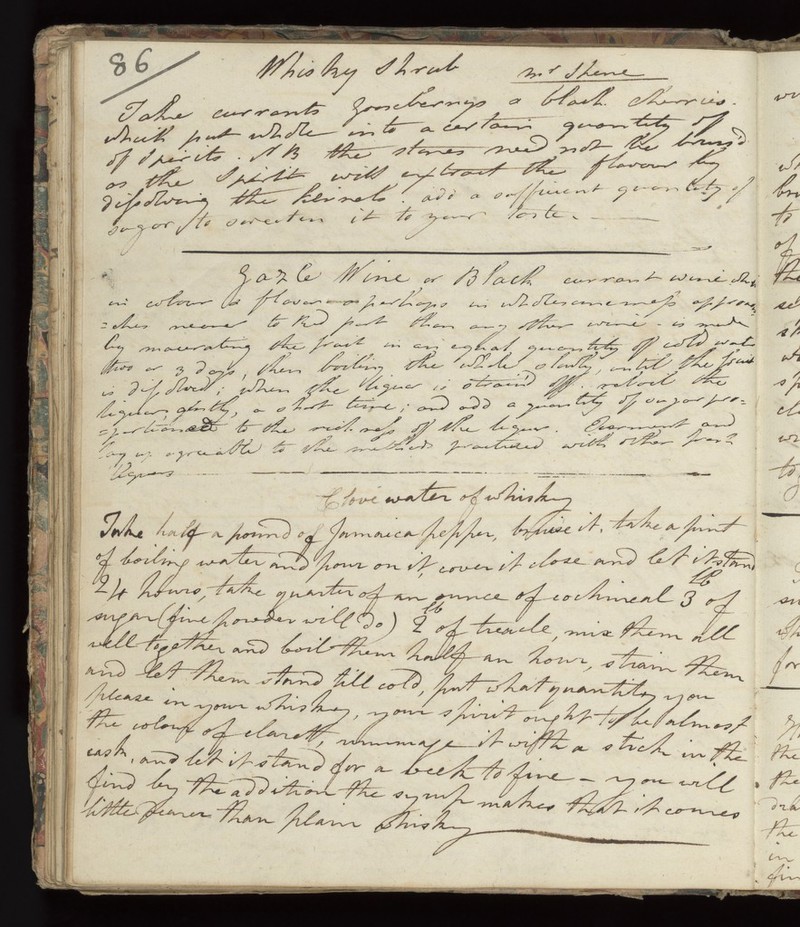 86
Whisky Shrub Mr Skene
Take currants gooseberrys a black cherries.
which put whole into a certain quantity of
of Spirits. NB the stones need not be bruis'd
as the Spirit will extract the flavour by
dissolving the kernels. add a sufficient quantity of
sugar to sweeten it to your taste.
Gazle Wine or Black currant wine which
in colour & flavour perhaps in wholesomeness approa=
=ches nearer to red port than any other wine. is made
by macerating the fruit in an equal quantity of cold water
two or 3 days, then boiling the whole slowly, until the fruit
is dissolved; when the liquor is strain'd off. reboil the
liquor, gently, a short time; and add a quantity of sugar pro=
=portioned to the richness of the liquor. Ferment and
lay up agreeable to the methods practised with other fruit
liquors
Clove water of whisky
Take half a pound of Jamaica pepper, bruise it. take a pint
of boiling water and pour on it, cover it close and let it stand
24 hours, take quarter of an ounce of cochineal 3 lb of
sugar (fine powder will do) 2 lb of treacle, mix them all
well together and boil them half an hour, strain them
and let them stand till cold, put what quantity you
please in your whiskey, your spirit ought to be almost
the colour of clarett, rummage it with a stick in the
cask, and let it stand for a week to fine – you will
find by the addition the syrup makes that it comes
little dearer than plain whisky